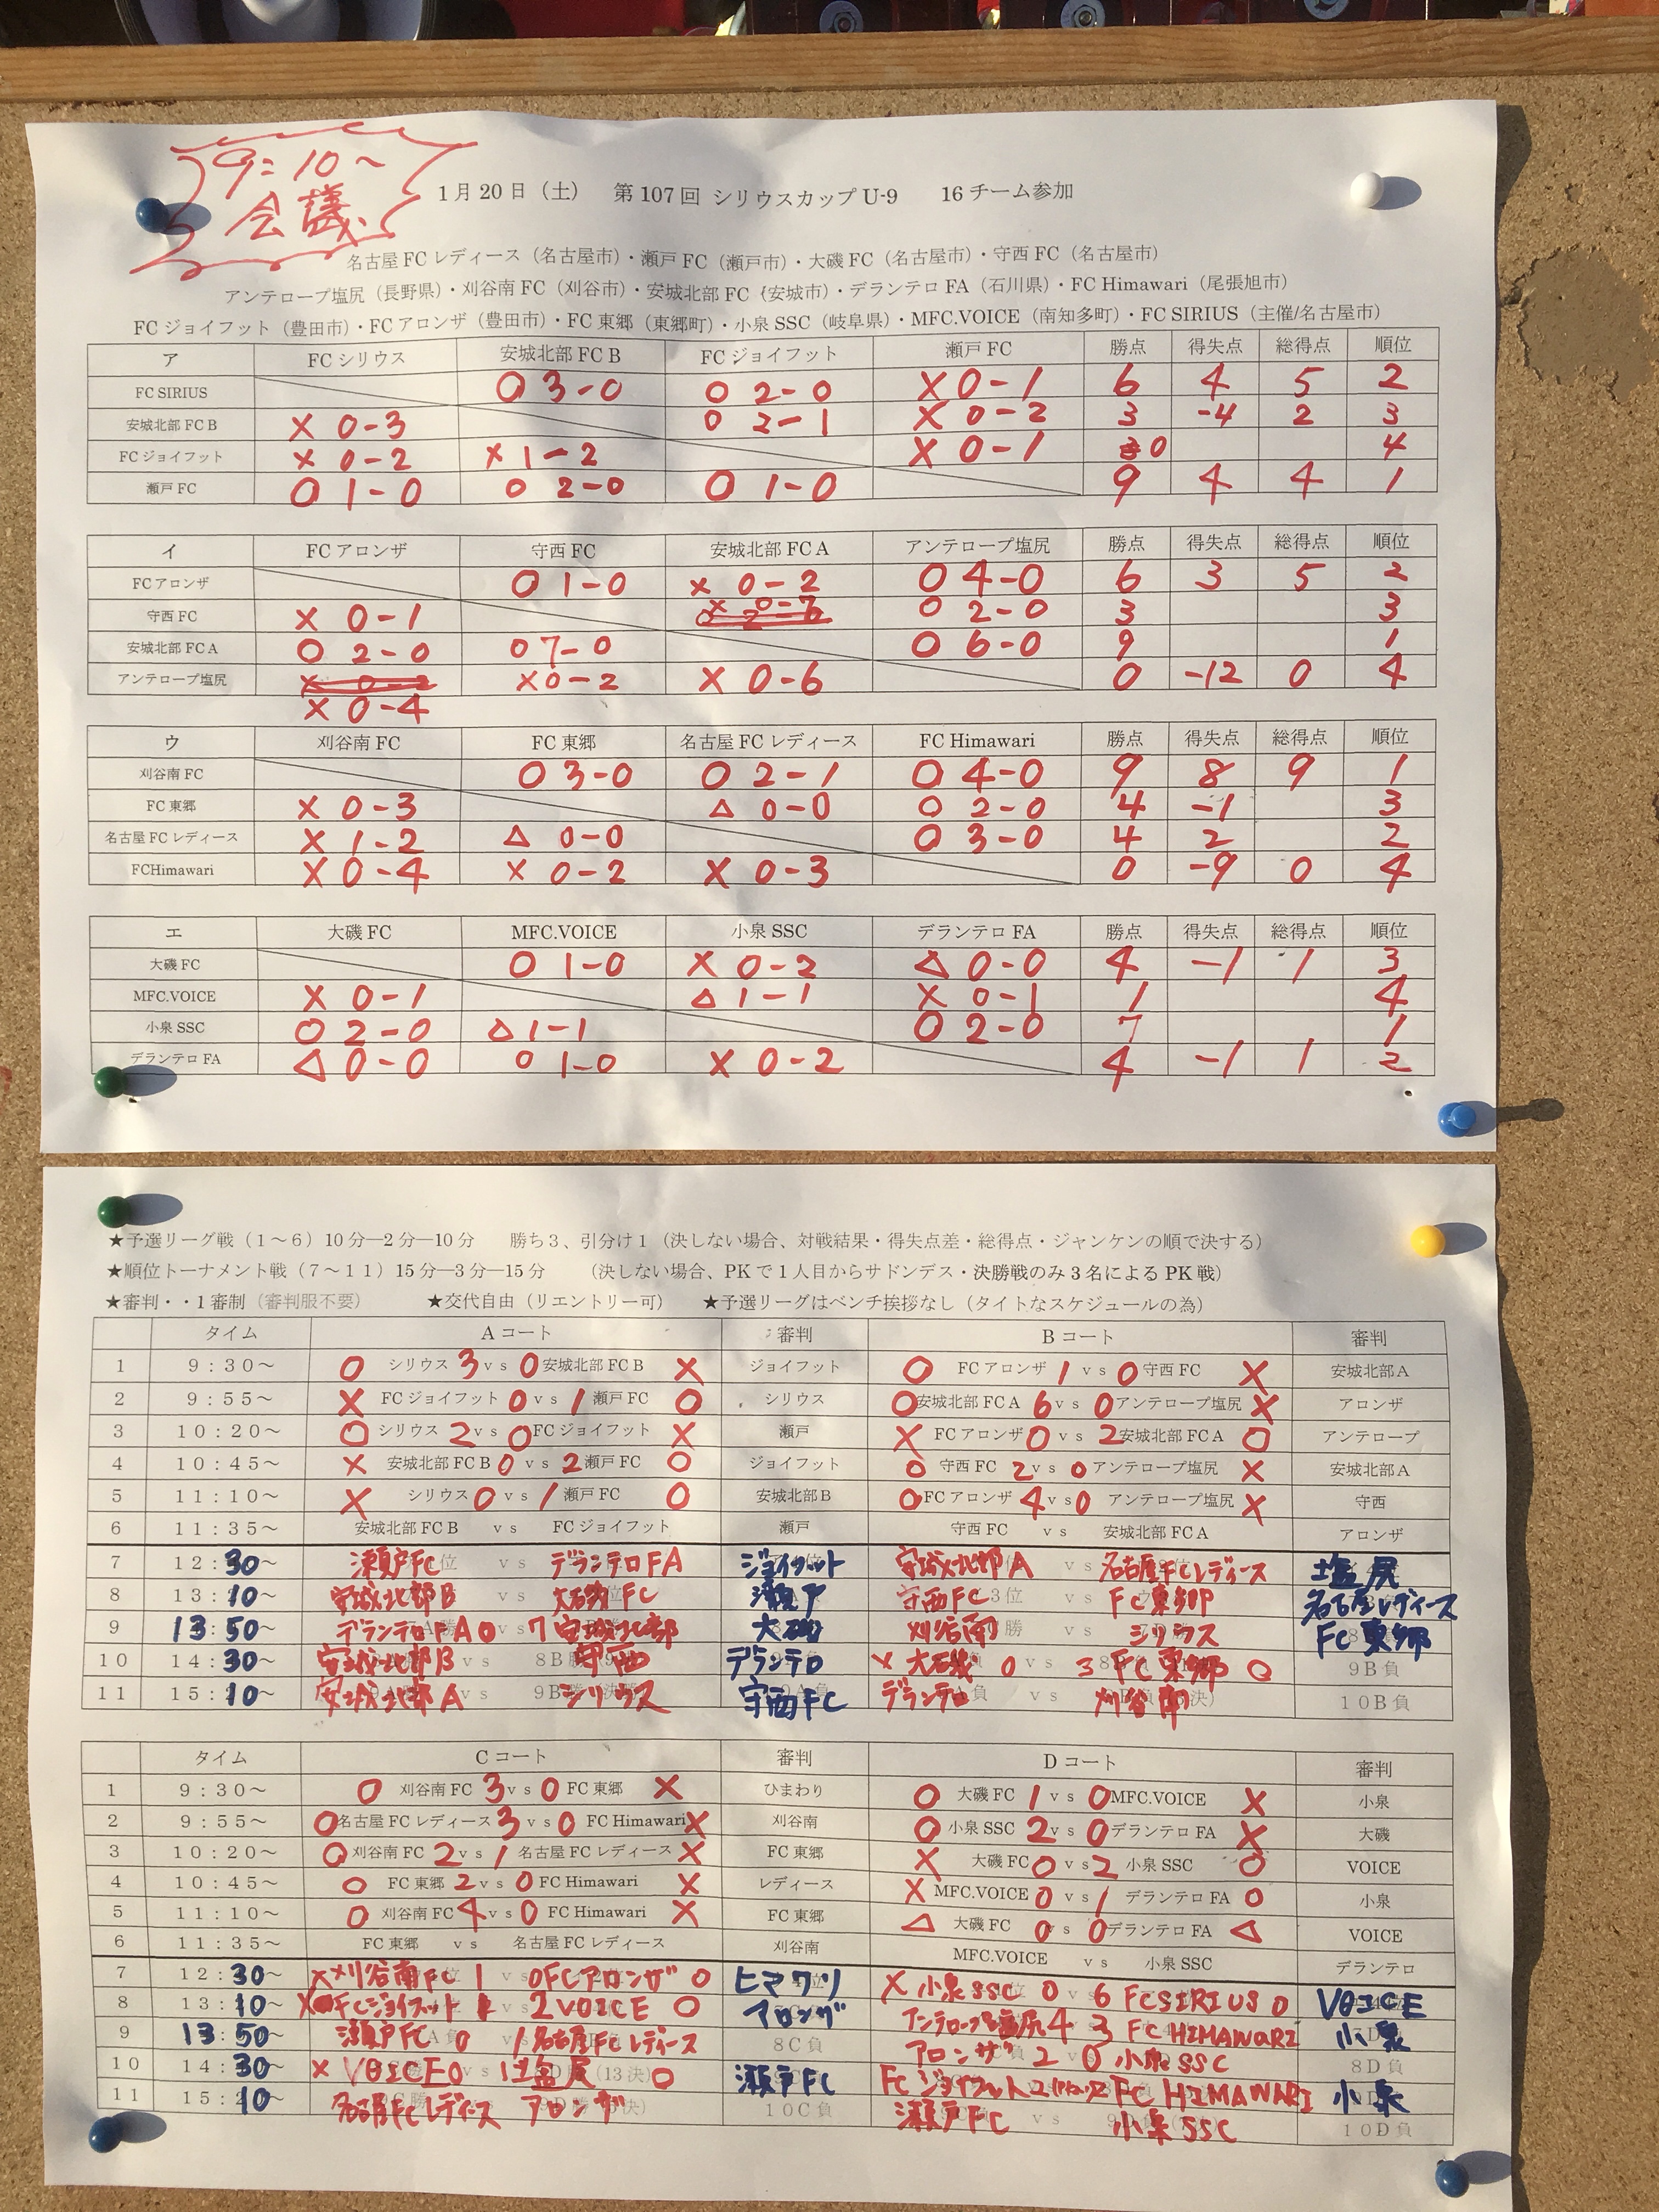 9:10~
会議
1月20日（土）　第107回 シリウスカップU-9　16チーム参加
名古屋FCレディース（名古屋市）・瀬戸FC（瀬戸市）・大磯FC（名古屋市）・守西FC（名古屋市）
アンテロープ塩尻（長野県）・刈谷南FC（刈谷市）・安城北部FC（安城市）・デランテロFA（石川県）・FC Himawari（尾張旭市）
FCジョイフット（豊田市）・FCアロンザ（豊田市）・FC東郷（東郷町）・小泉SSC（岐阜県）・MFC.VOICE（南知多町）・FC SIRIUS（主催/名古屋市）
ア FCシリウス 安城北部FC B FCジョイフット 瀬戸FC 勝点 得失点 総得点 順位
FC SIRIUS ○ 3-0 ○ 2-0 × 0-1 6 4 5 2
安城北部FC B × 0-3 ○ 2-1 × 0-2 3 -4 2 3
FCジョイフット × 0-2 × 1-2 × 0-1 0 4
瀬戸FC ○ 1-0 ○ 2-0 ○ 1-0 9 4 4 1
イ FCアロンザ 守西FC 安城北部FC A アンテロープ塩尻 勝点 得失点 総得点 順位
FCアロンザ ○ 1-0 × 0-2 ○ 4-0 6 3 5 2
守西FC × 0-1 × 0-7 ○ 2-0 3 3
安城北部FC A ○ 2-0 ○ 7-0 ○ 6-0 9 1
アンテロープ塩尻 × 0-2 × 0-2 × 0-6 0 -12 0 4
× 0-4
ウ 刈谷南FC FC東郷 名古屋FCレディース FC Himawari 勝点 得失点 総得点 順位
刈谷南FC ○ 3-0 ○ 2-1 ○ 4-0 9 8 9 1
FC東郷 × 0-3 △ 0-0 ○ 2-0 4 -1 3
名古屋FCレディース × 1-2 △ 0-0 ○ 3-0 4 2 2
FCHimawari × 0-4 × 0-2 × 0-3 0 -9 0 4
エ 大磯FC MFC.VOICE 小泉SSC デランテロFA 勝点 得失点 総得点 順位
大磯FC ○ 1-0 × 0-2 △ 0-0 4 -1 1 3
MFC.VOICE × 0-1 △ 1-1 × 0-1 1 4
小泉SSC ○ 2-0 △ 1-1 ○ 2-0 7 1
デランテロFA △ 0-0 ○ 1-0 × 0-2 4 -1 1 2
★予選リーグ戦（1～6）10分―2分―10分　勝ち3、引分け1（決しない場合、対戦結果・得失点差・総得点・ジャンケンの順で決する）
★順位トーナメント戦（7～11）15分―3分―15分　（決しない場合、PKで1人目からサドンデス・決勝戦のみ3名によるPK戦）
★審判・・1審制（審判服不要）　★交代自由（リエントリー可）　★予選リーグはベンチ挨拶なし（タイトなスケジュールの為）
タイム Aコート 審判 Bコート 審判
1 9:30～ ○ シリウス 3 vs 0 安城北部FC B × ジョイフット ○ FCアロンザ 1 vs 0 守西FC × 安城北部A
2 9:55～ × FCジョイフット 0 vs 1 瀬戸FC ○ シリウス ○ 安城北部FC A 6 vs 0 アンテロープ塩尻 × アロンザ
3 10:20～ ○ シリウス 2 vs 0 FCジョイフット × 瀬戸 × FCアロンザ 0 vs 2 安城北部FC A ○ アンテロープ
4 10:45～ × 安城北部FC B 0 vs 2 瀬戸FC ○ ジョイフット ○ 守西FC 2 vs 0 アンテロープ塩尻 × 安城北部A
5 11:10～ × シリウス 0 vs 1 瀬戸FC ○ 安城北部B ○ FCアロンザ 4 vs 0 アンテロープ塩尻 × 守西
6 11:35～ 安城北部FC B vs FCジョイフット 瀬戸 守西FC vs 安城北部FC A アロンザ
7 12:30～ 瀬戸FC vs デランテロFA ジョイフット 安城北部A vs 名古屋FCレディース 塩尻
8 13:10～ 安城北部B 大磯FC 瀬戸 守西FC 3位 FC東郷 名古屋レディース
9 13:50～ デランテロFA 0 7 安城北部 大磯 刈谷南 勝 シリウス FC東郷
10 14:30～ 安城北部B vs 8B 守西 デランテロ × 大磯 0 vs 3 FC東郷 ○ 9B負
11 15:10～ 安城北部A vs 9B シリウス 守西FC デランテロ vs 刈谷南 10B負
タイム Cコート 審判 Dコート 審判
1 9:30～ ○ 刈谷南FC 3 vs 0 FC東郷 × ひまわり ○ 大磯FC 1 vs 0 MFC.VOICE × 小泉
2 9:55～ ○ 名古屋FCレディース 3 vs 0 FC Himawari × 刈谷南 ○ 小泉SSC 2 vs 0 デランテロFA × 大磯
3 10:20～ ○ 刈谷南FC 2 vs 1 名古屋FCレディース × FC東郷 × 大磯FC 0 vs 2 小泉SSC ○ VOICE
4 10:45～ ○ FC東郷 2 vs 0 FC Himawari × レディース × MFC.VOICE 0 vs 1 デランテロFA ○ 小泉
5 11:10～ ○ 刈谷南FC 4 vs 0 FC Himawari × FC東郷 △ 大磯FC 0 vs 0 デランテロFA △ VOICE
6 11:35～ FC東郷 vs 名古屋FCレディース 刈谷南 MFC.VOICE vs 小泉SSC デランテロ
7 12:30～ × 刈谷南FC 1 vs 0 FCアロンザ ○ ヒマワリ × 小泉SSC 0 6 FCSIRIUS ○ VOICE
8 13:10～ × FCジョイフット 2 VOICE ○ アロンザ アンテロープ塩尻 4 3 FC HIMAWARI 小泉
9 13:50～ 瀬戸FC 0 1 名古屋FCレディース 8C負 アロンザ 2 0 小泉SSC 8D負
10 14:30～ × VOICE 0 vs 1 塩尻 (13決) ○ 瀬戸FC FCジョイフット 2 2 FC HIMAWARI 小泉
11 15:10～ 名古屋FCレディース アロンザ 10C負 瀬戸FC vs 小泉SSC 10D負